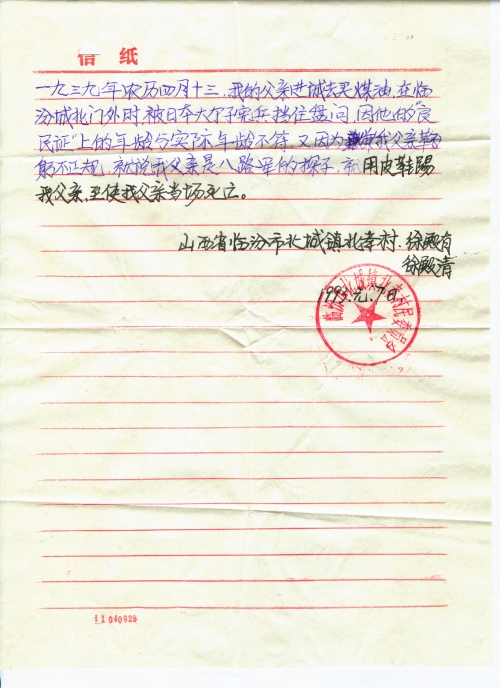 信纸
一九三九年农历四月十三，我的父亲进城去买煤油，在临
汾城北门外时，被日本大个子宪兵挡住盘问，因他的"良
民证"上的年龄与实际年龄不符，又因为我父亲鞠
躬不正规，就说我父亲是八路军的探子，用皮鞋踢
我父亲，至使我父亲当场死亡。
山西省临汾市北城镇北孝村，徐殿有
徐殿清
1995.元.7日
临汾市北城镇北孝村民委员会
11040829